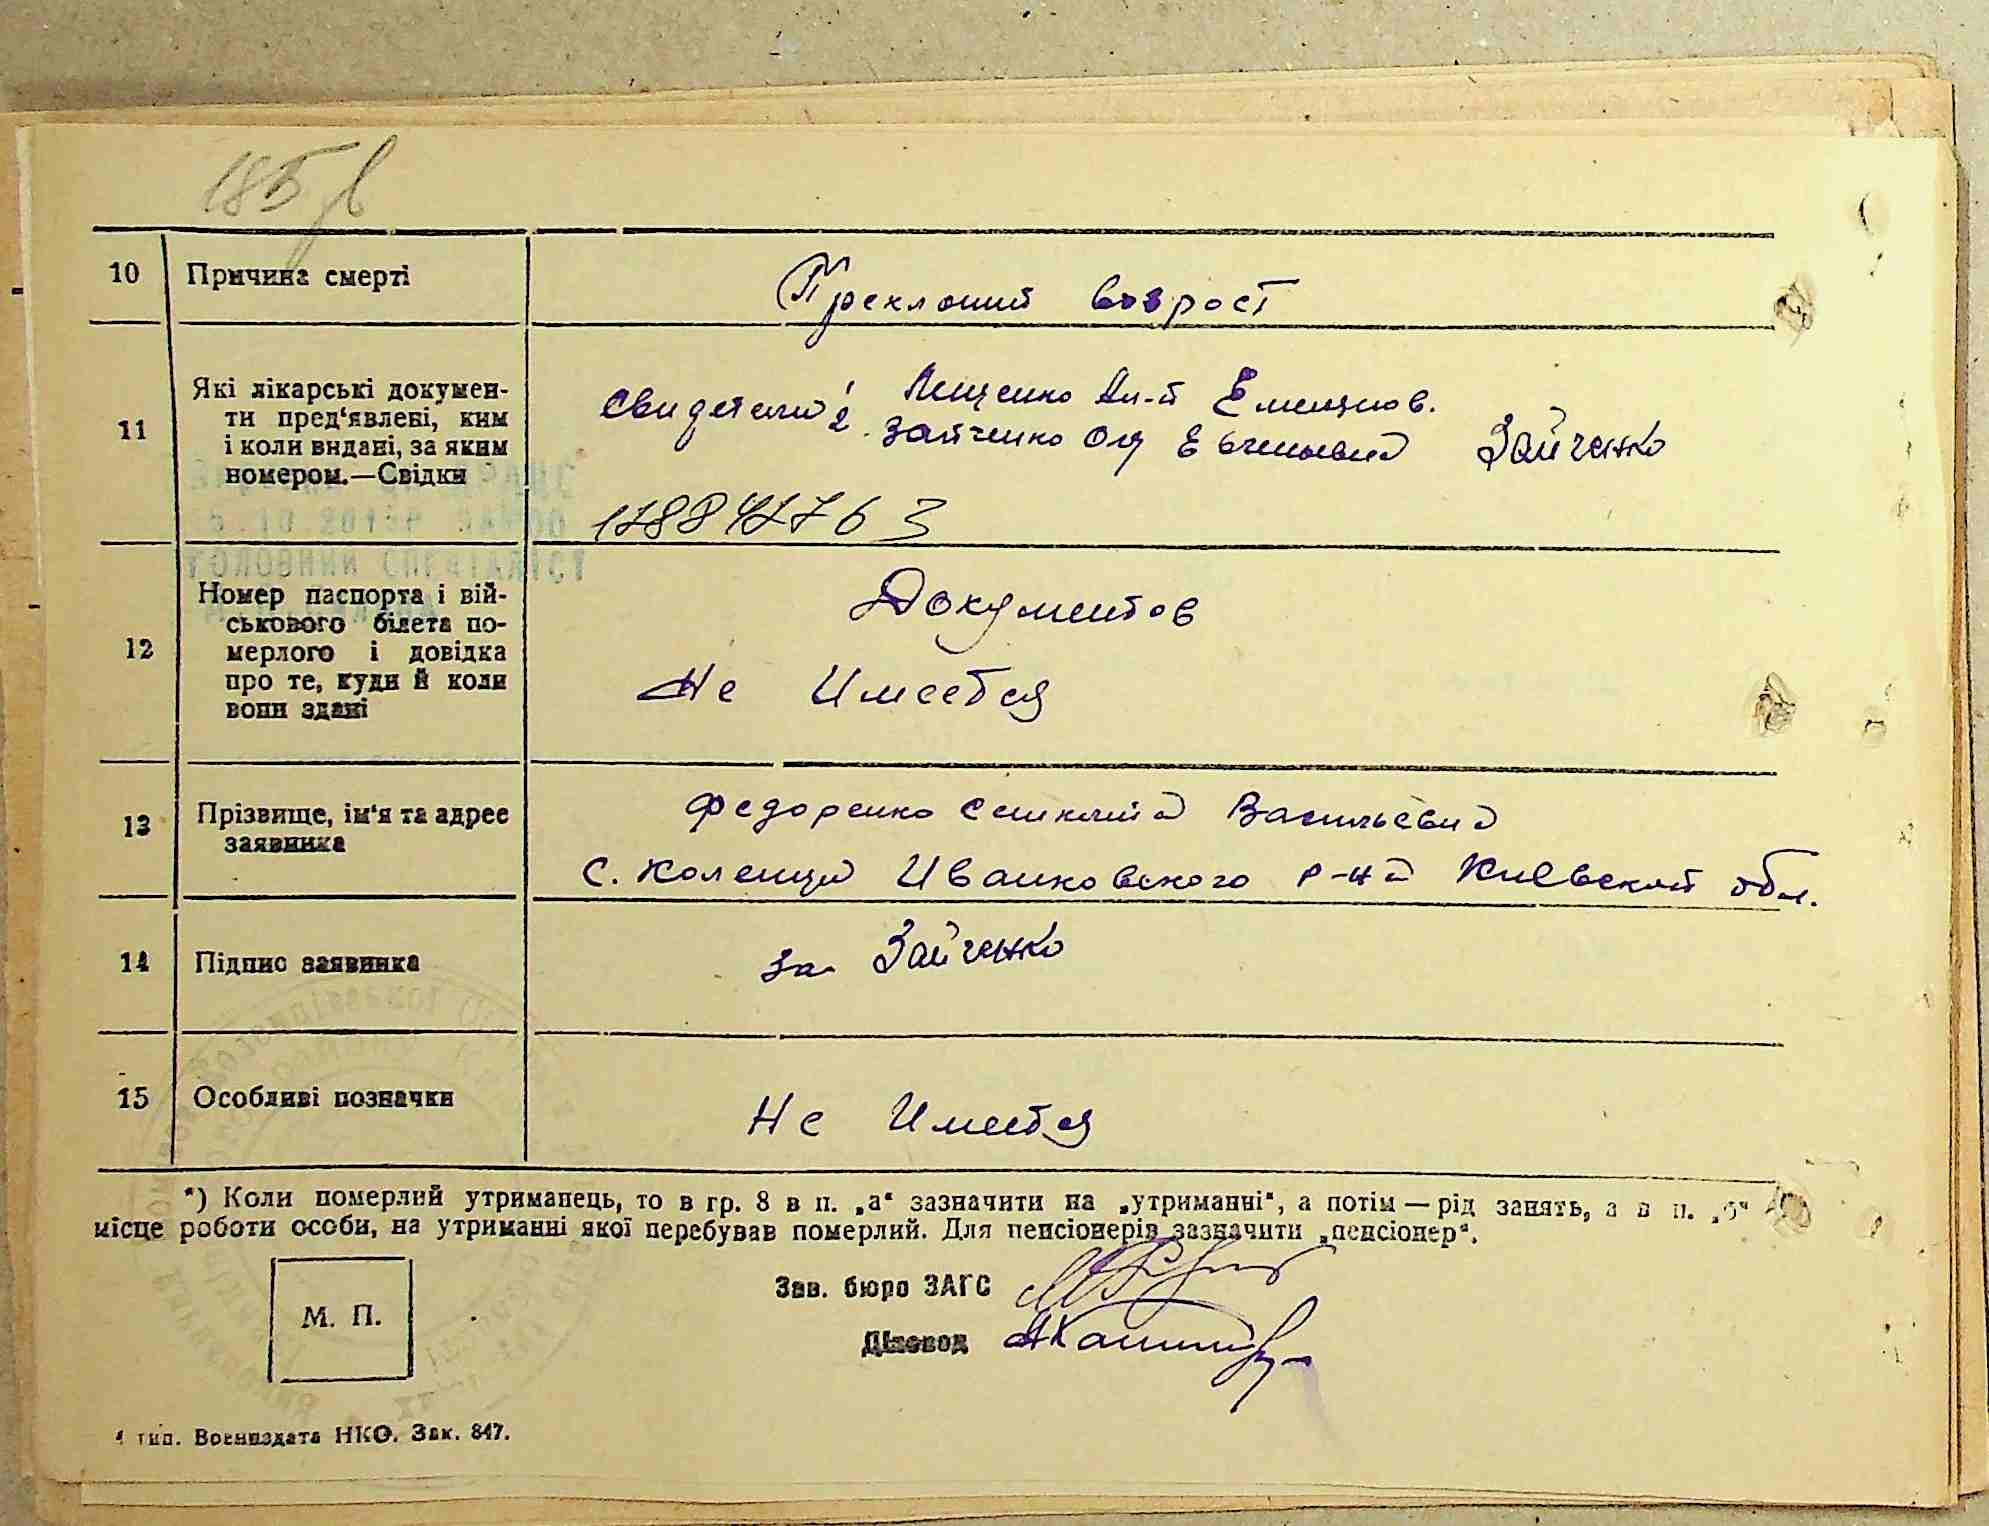 10 Причина смерті
Преклоний возрост
11 Які лікарські докумен-
ти пред'явлені, ким
і коли видані, за яким
номером.—Свідки
Свидетели 1 Пищенко Ал-й
2 Зайченко Зайченко
12 Номер паспорта і вій-
ськового білета по-
мерлого і довідка
про те, куди й коли
вони здані
Документов
Не Имеется
13 Прізвище, ім'я та адрес
заявника
Федоренко Васильевна
с. Коленцы Иванковского р-на Киевской обл.
14 Підпис заявника
за Зайченко
15 Особливі позначки
Не Имеется
*) Коли померлий утриманець, то в гр. 8 в п. „а“ зазначити на „утриманні“, а потім — рід занять, а в п. „б“
місце роботи особи, на утриманні якої перебував померлий. Для пенсіонерів зазначити „пенсіонер“.
Зав. бюро ЗАГС
М. П.
Діловод
тип. Воениздата НКО. Зак. 847.